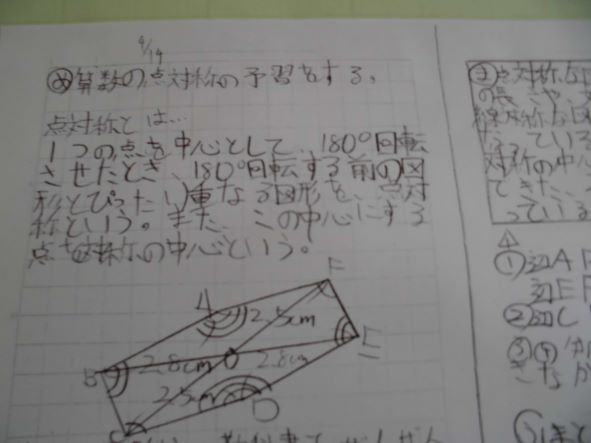 4/19
め算数の点対称の予習をする。
点対称とは…
1つの点を中心として、180°回転
させたとき、180°回転する前の図
形とぴったり重なる図形を、点対
称という。また、この中心にする
点を対称の中心という。
F
A
2.5cm
E
2.8cm
O
2.8cm
B
2.5cm
D
C
ま点対称な図
の長さや、
線対称な図
ている
対称の中心
できた、
っている
①辺AB
辺EF
②辺C
③